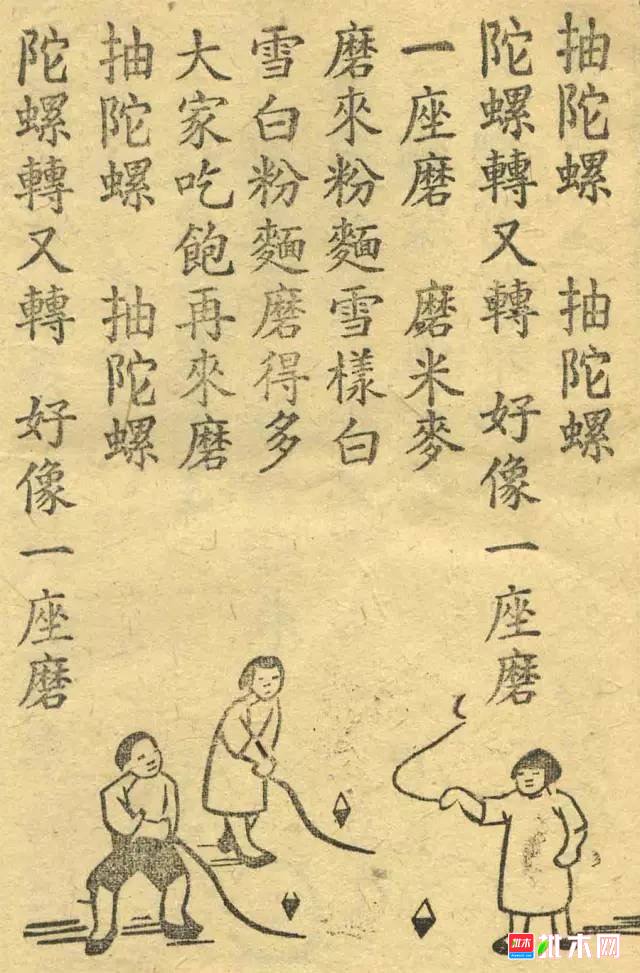 抽陀螺　抽陀螺
陀螺轉又轉　好像一座磨
一座磨　磨米麥
磨來粉麵雪樣白
雪白粉麵磨得多
大家吃飽再來磨
抽陀螺　抽陀螺
陀螺轉又轉　好像一座磨
批木网